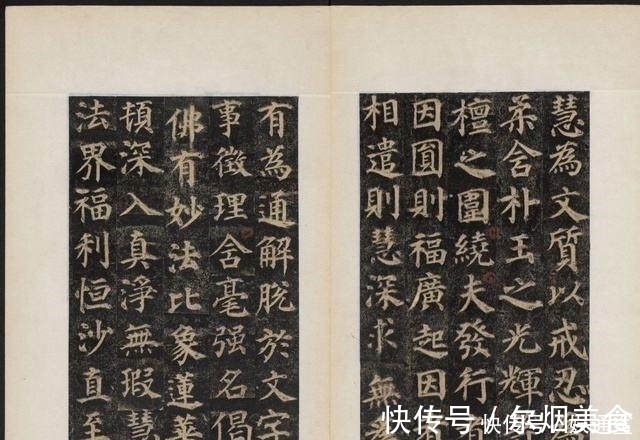 慧為文質以戒忍
柔含朴玉之光輝
檀之圍繞夫發行
因圓則福廣起因
相遣則慧深求無
有為通解脫於文字
事徵理含毫強名偈
佛有妙法比象蓮華
頓深入真淨無瑕慧
法界福利恒沙直至
快传号 /